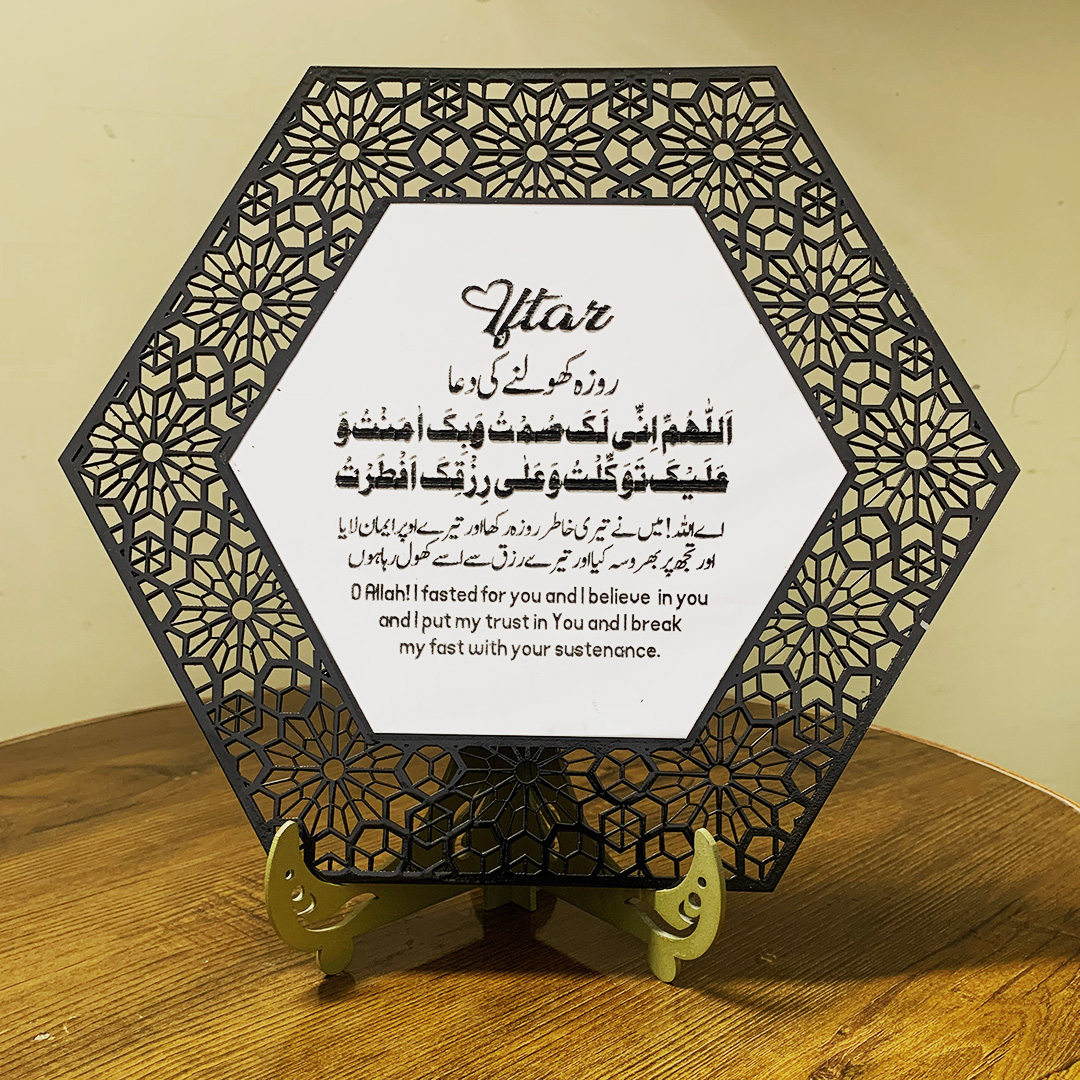 Iftar
روزہ کھولنے کی دعا
اَللّٰهُمَّ اِنِّی لَکَ صُمْتُ وَبِکَ اٰمَنْتُ وَ
عَلَيْکَ تَوَکَّلْتُ وَعَلٰی رِزْقِکَ اَفْطَرْتُ
اے اللہ! میں نے تیری خاطر روزہ رکھا اور تیرے اوپر ایمان لایا
اور تجھ پر بھروسہ کیا اور تیرے رزق سے اسے کھول رہا ہوں
O Allah! I fasted for you and I believe in you
and I put my trust in You and I break
my fast with your sustenance.